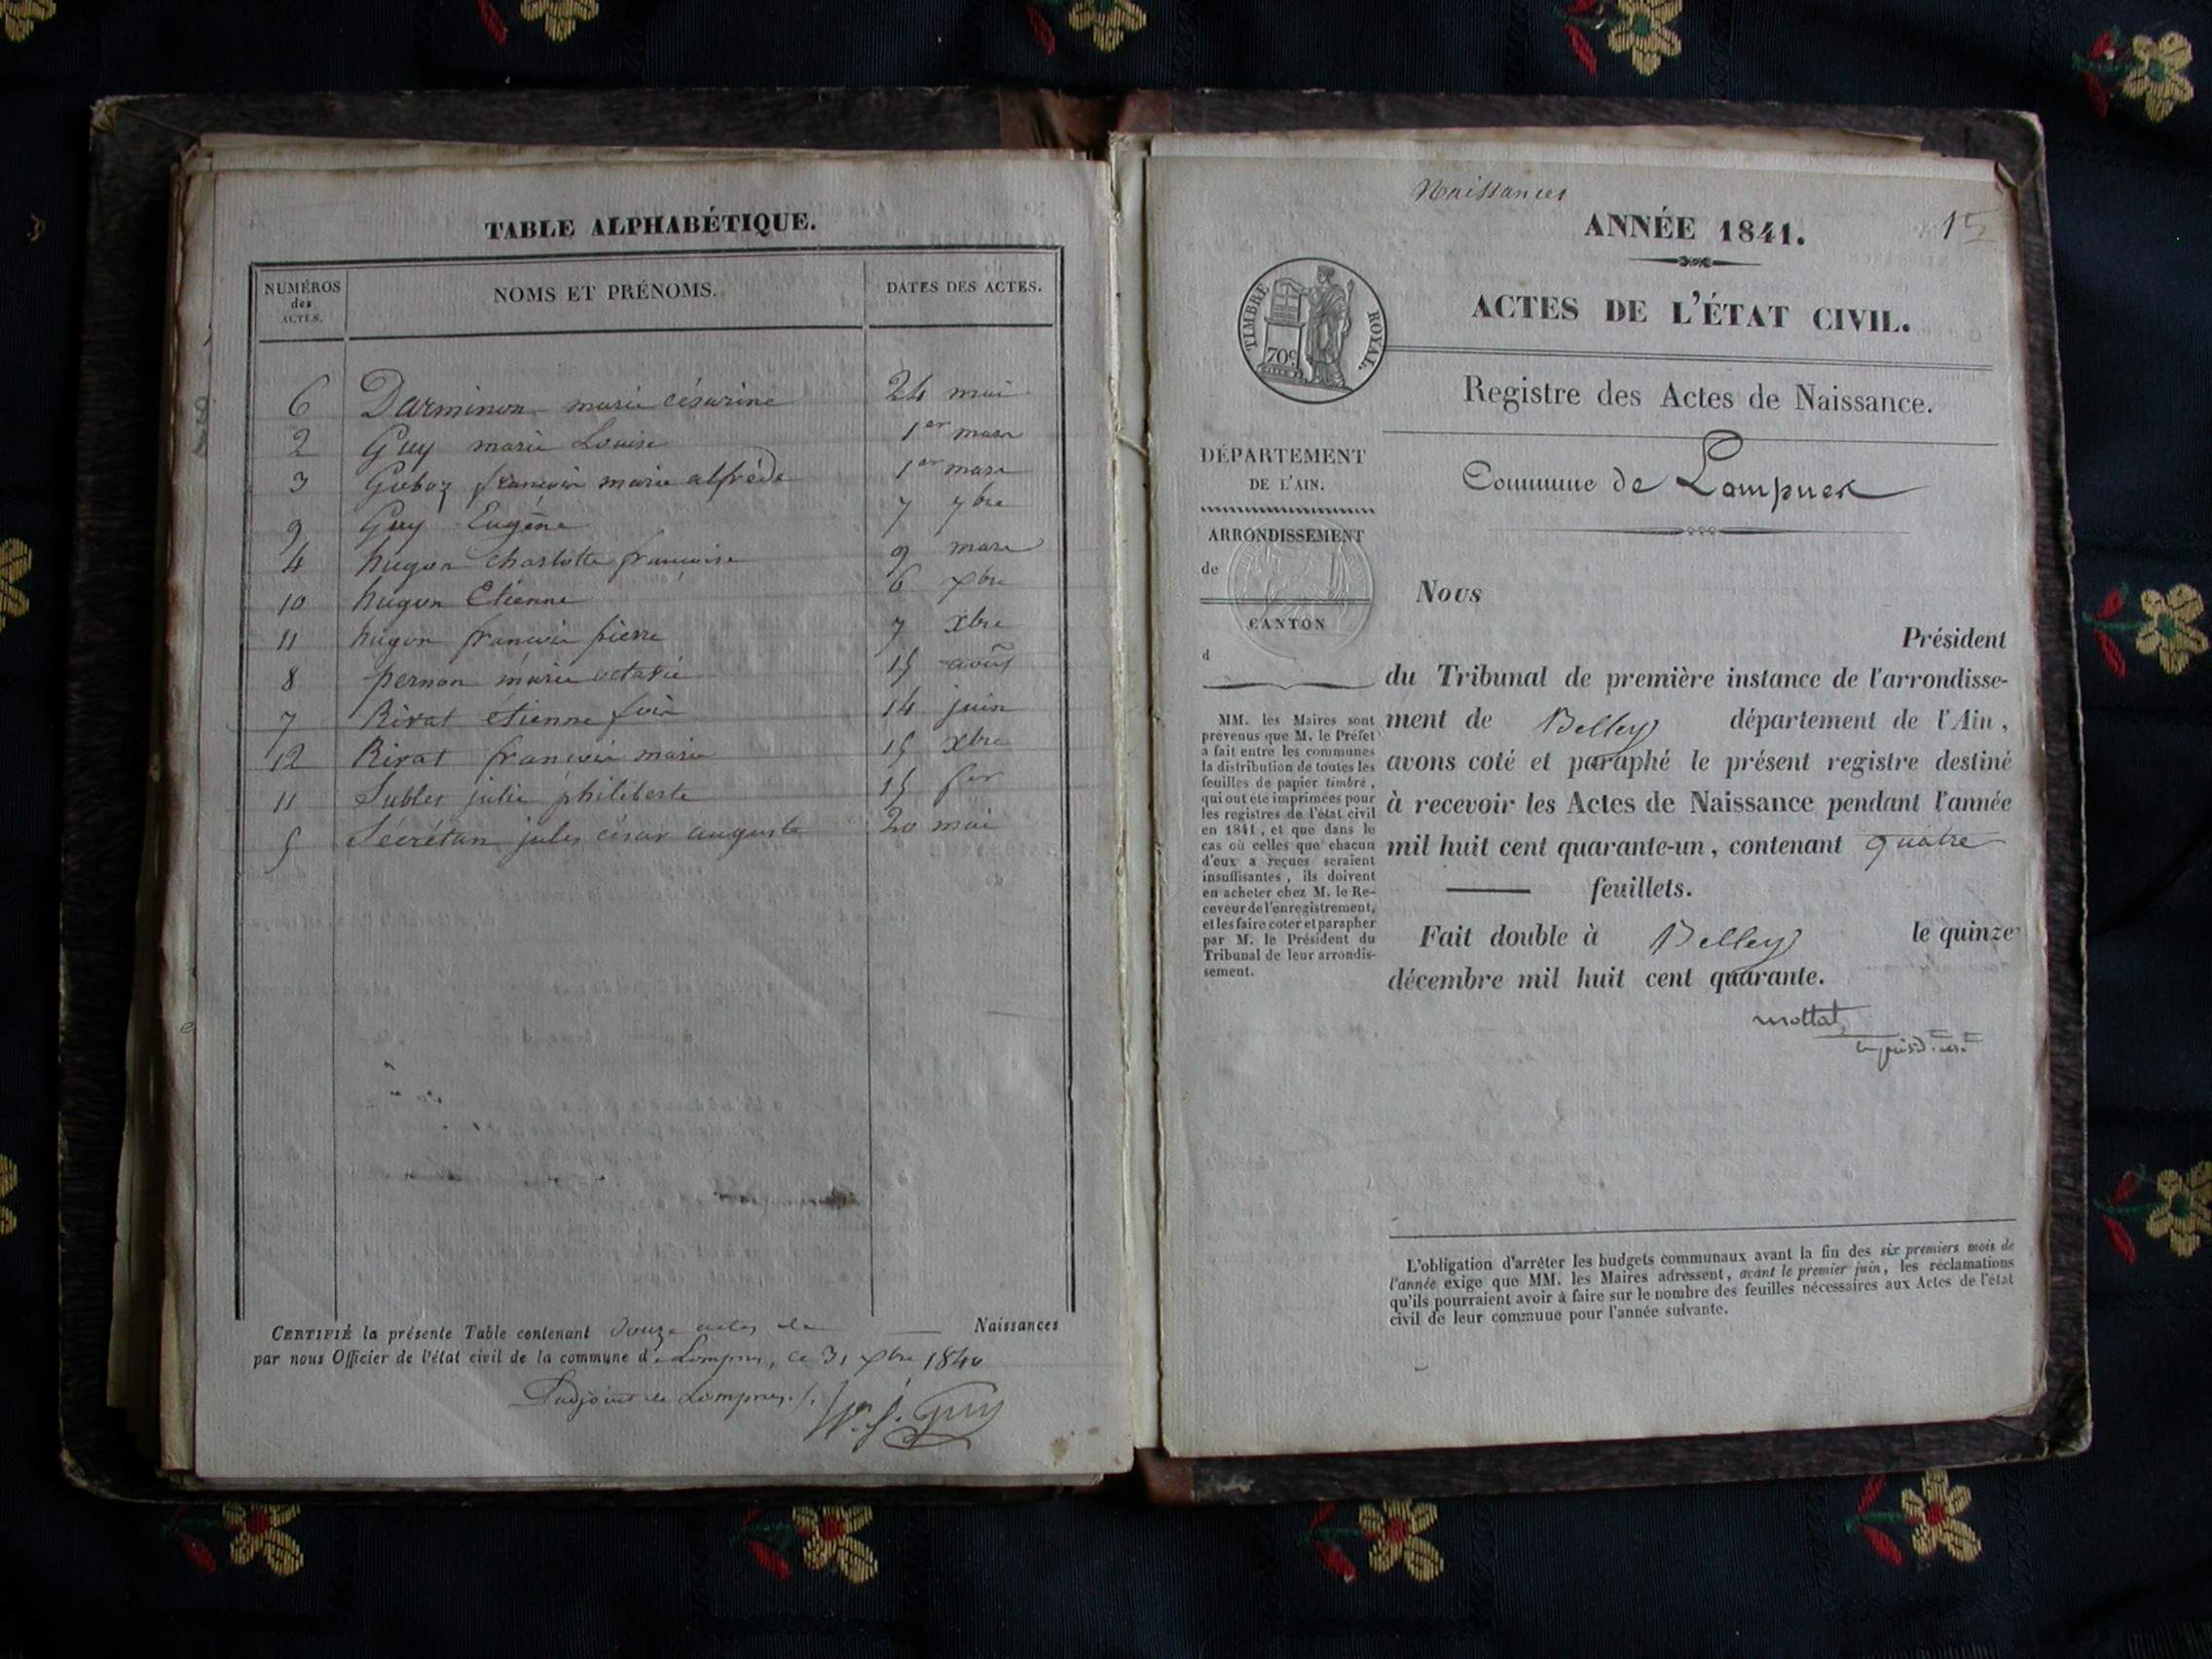 TABLE ALPHABÉTIQUE.
NUMÉROS des ACTES. NOMS ET PRÉNOMS. DATES DES ACTES.
6 Darminon marie césarine 24 mai
2 Guy marie Louise 1er mars
3 Goboz françois marie alfréde 1er mars
9 Guy Eugène 7 7bre
4 hugon charlotte françoise 9 mars
10 hugon Etienne 6 xbre
11 hugon françois pierre 7 xbre
8 pernon marie octavie 15 août
7 Rivat etienne 14 juin
12 Rivat françois marie 15 xbre
11 Sublet julie philiberte 15 fer
5 Sécrétan jules césar auguste 20 mai
CERTIFIÉ la présente Table contenant douze actes de Naissances
par nous Officier de l'état civil de la commune de Lompnes, ce 31 xbre 1840
L'adjoint de Lompnes
Guy
Naissances
ANNÉE 1841.
TIMBRE ROYAL.
70c
ACTES DE L'ÉTAT CIVIL.
Registre des Actes de Naissance.
DÉPARTEMENT
DE L'AIN.
Commune de Lompnes
ARRONDISSEMENT
de
CANTON
d
MM. les Maires sont
prévenus que M. le Préfet
a fait entre les communes
la distribution de toutes les
feuilles de papier timbré,
qui ont été imprimées pour
les registres de l'état civil
en 1841, et que dans le
cas où celles que chacun
d'eux a reçues seraient
insuffisantes, ils doivent
en acheter chez M. le Re-
ceveur de l'enregistrement,
et les faire coter et parapher
par M. le Président du
Tribunal de leur arrondis-
sement.
Nous
Président
du Tribunal de première instance de l'arrondisse-
ment de Belley département de l'Ain,
avons coté et paraphé le présent registre destiné
à recevoir les Actes de Naissance pendant l'année
mil huit cent quarante-un, contenant quatre
feuillets.
Fait double à Belley le quinze
décembre mil huit cent quarante.
L'obligation d'arrêter les budgets communaux avant la fin des six premiers mois de
l'année exige que MM. les Maires adressent, avant le premier juin, les réclamations
qu'ils pourraient avoir à faire sur le nombre des feuilles nécessaires aux Actes de l'état
civil de leur commune pour l'année suivante.